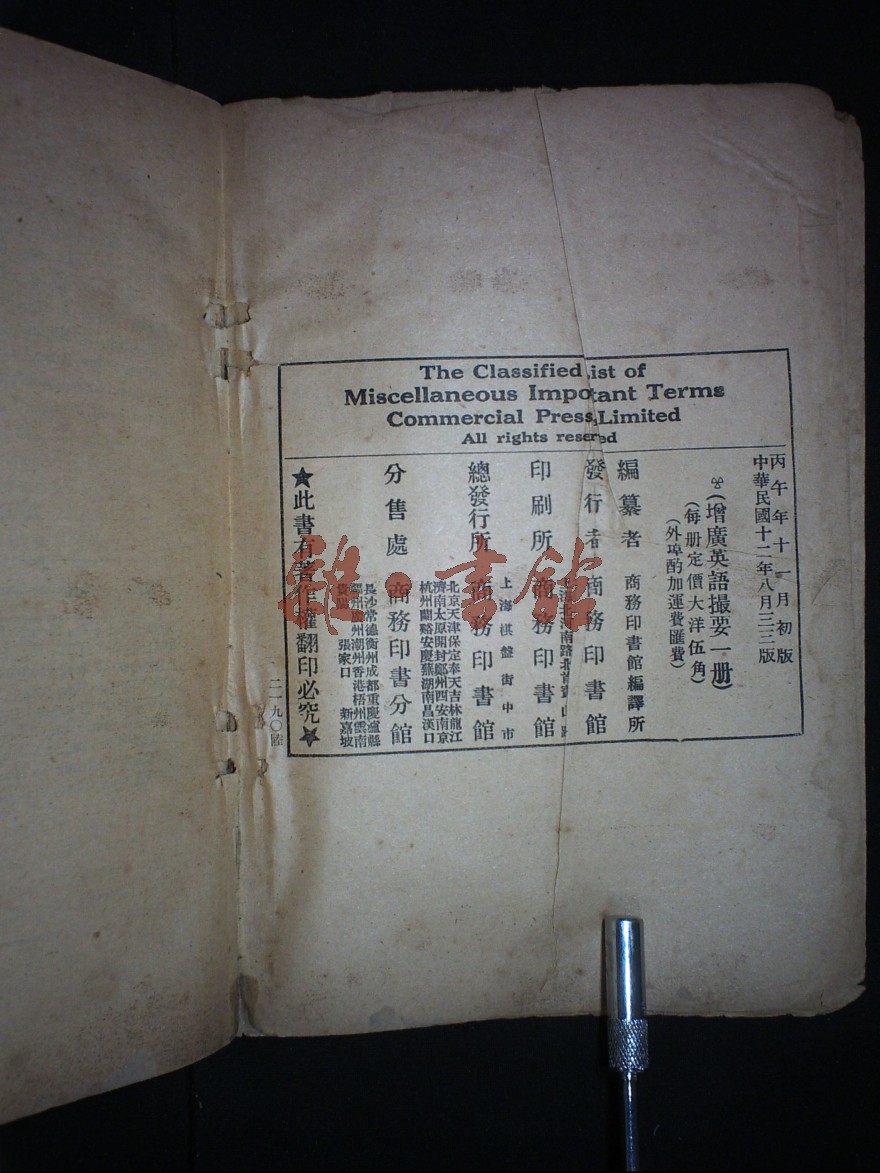 The Classified ist of
Miscellaneous Impo tant Terms
Commercial Press, Limited
All rights rese ed
丙午年十一月初版
中華民國十二年八月三三版
(增廣英語撮要一册)
(每册定價大洋伍角)
(外埠酌加運費匯費)
編纂者 商務印書館編譯所
發行者 商務印書館
印刷所 商務印書館
總發行所 商務印書館
上海棋盤街中市
分售處 商務印書分館
北京天津保定奉天吉林龍江
濟南太原開封鄭州西安南京
杭州蘭谿安慶蕪湖南昌漢口
長沙常德衡州成都重慶瀘縣
福州廣州潮州香港梧州雲南
貴陽 張家口 新嘉坡
★此書有著作權翻印必究★
二一九〇陸
雜·書館